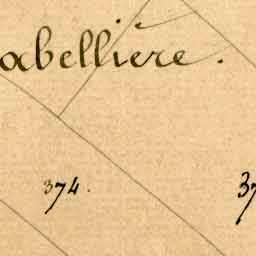 abellière.
374. 37